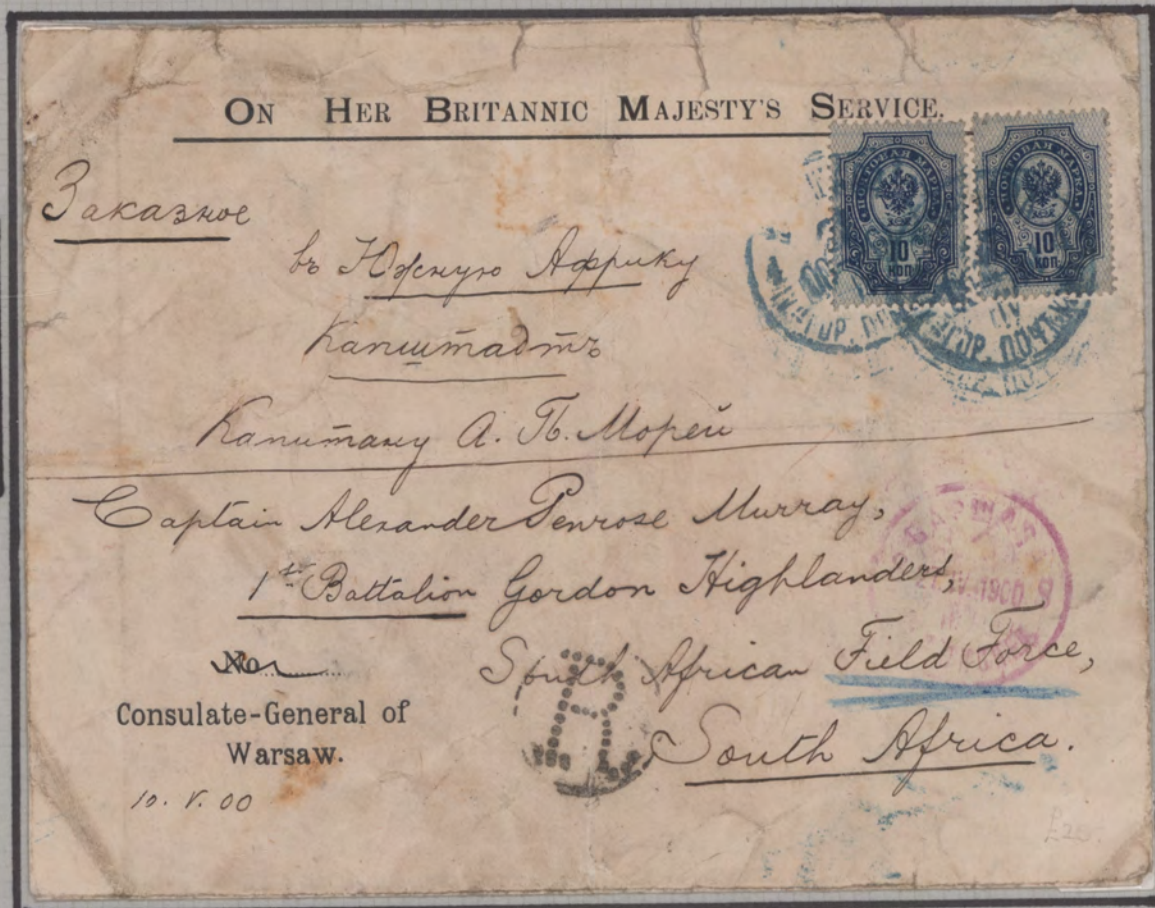 ON HER BRITANNIC MAJESTY'S SERVICE.
ПОЧТОВАЯ МАРКА
10
КОП
ПОЧТОВАЯ МАРКА
10
КОП
Заказное
въ Южную Африку
Капштадтъ
Капитану А. П. Морей
Captain Alexander Penrose Murray,
1st Battalion Gordon Highlanders,
ВАРШАВА
IV.1900
South African Field Force,
South Africa.
R
No
Consulate-General of
Warsaw.
10. V. 00